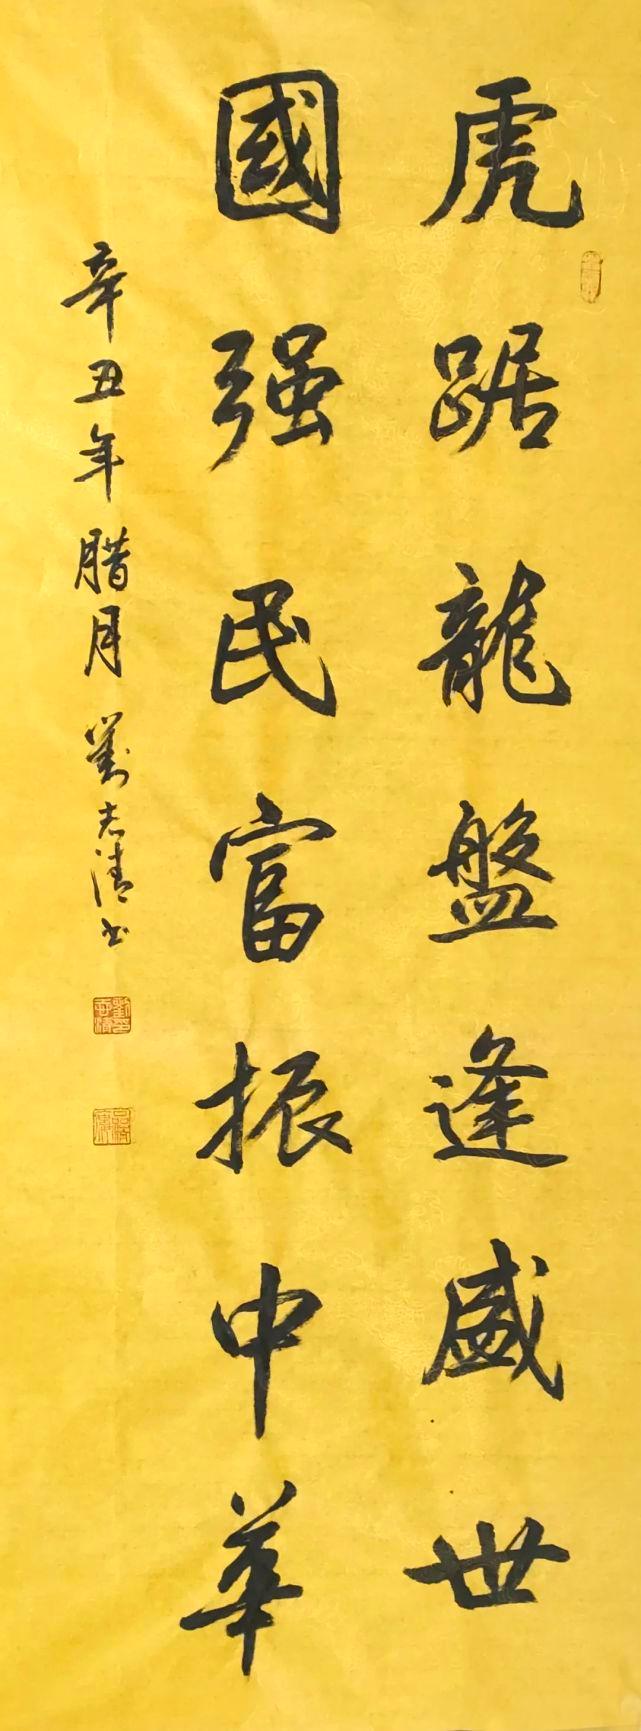 虎踞龍盤逢盛世
國强民富振中華
辛丑年腊月劉志清书